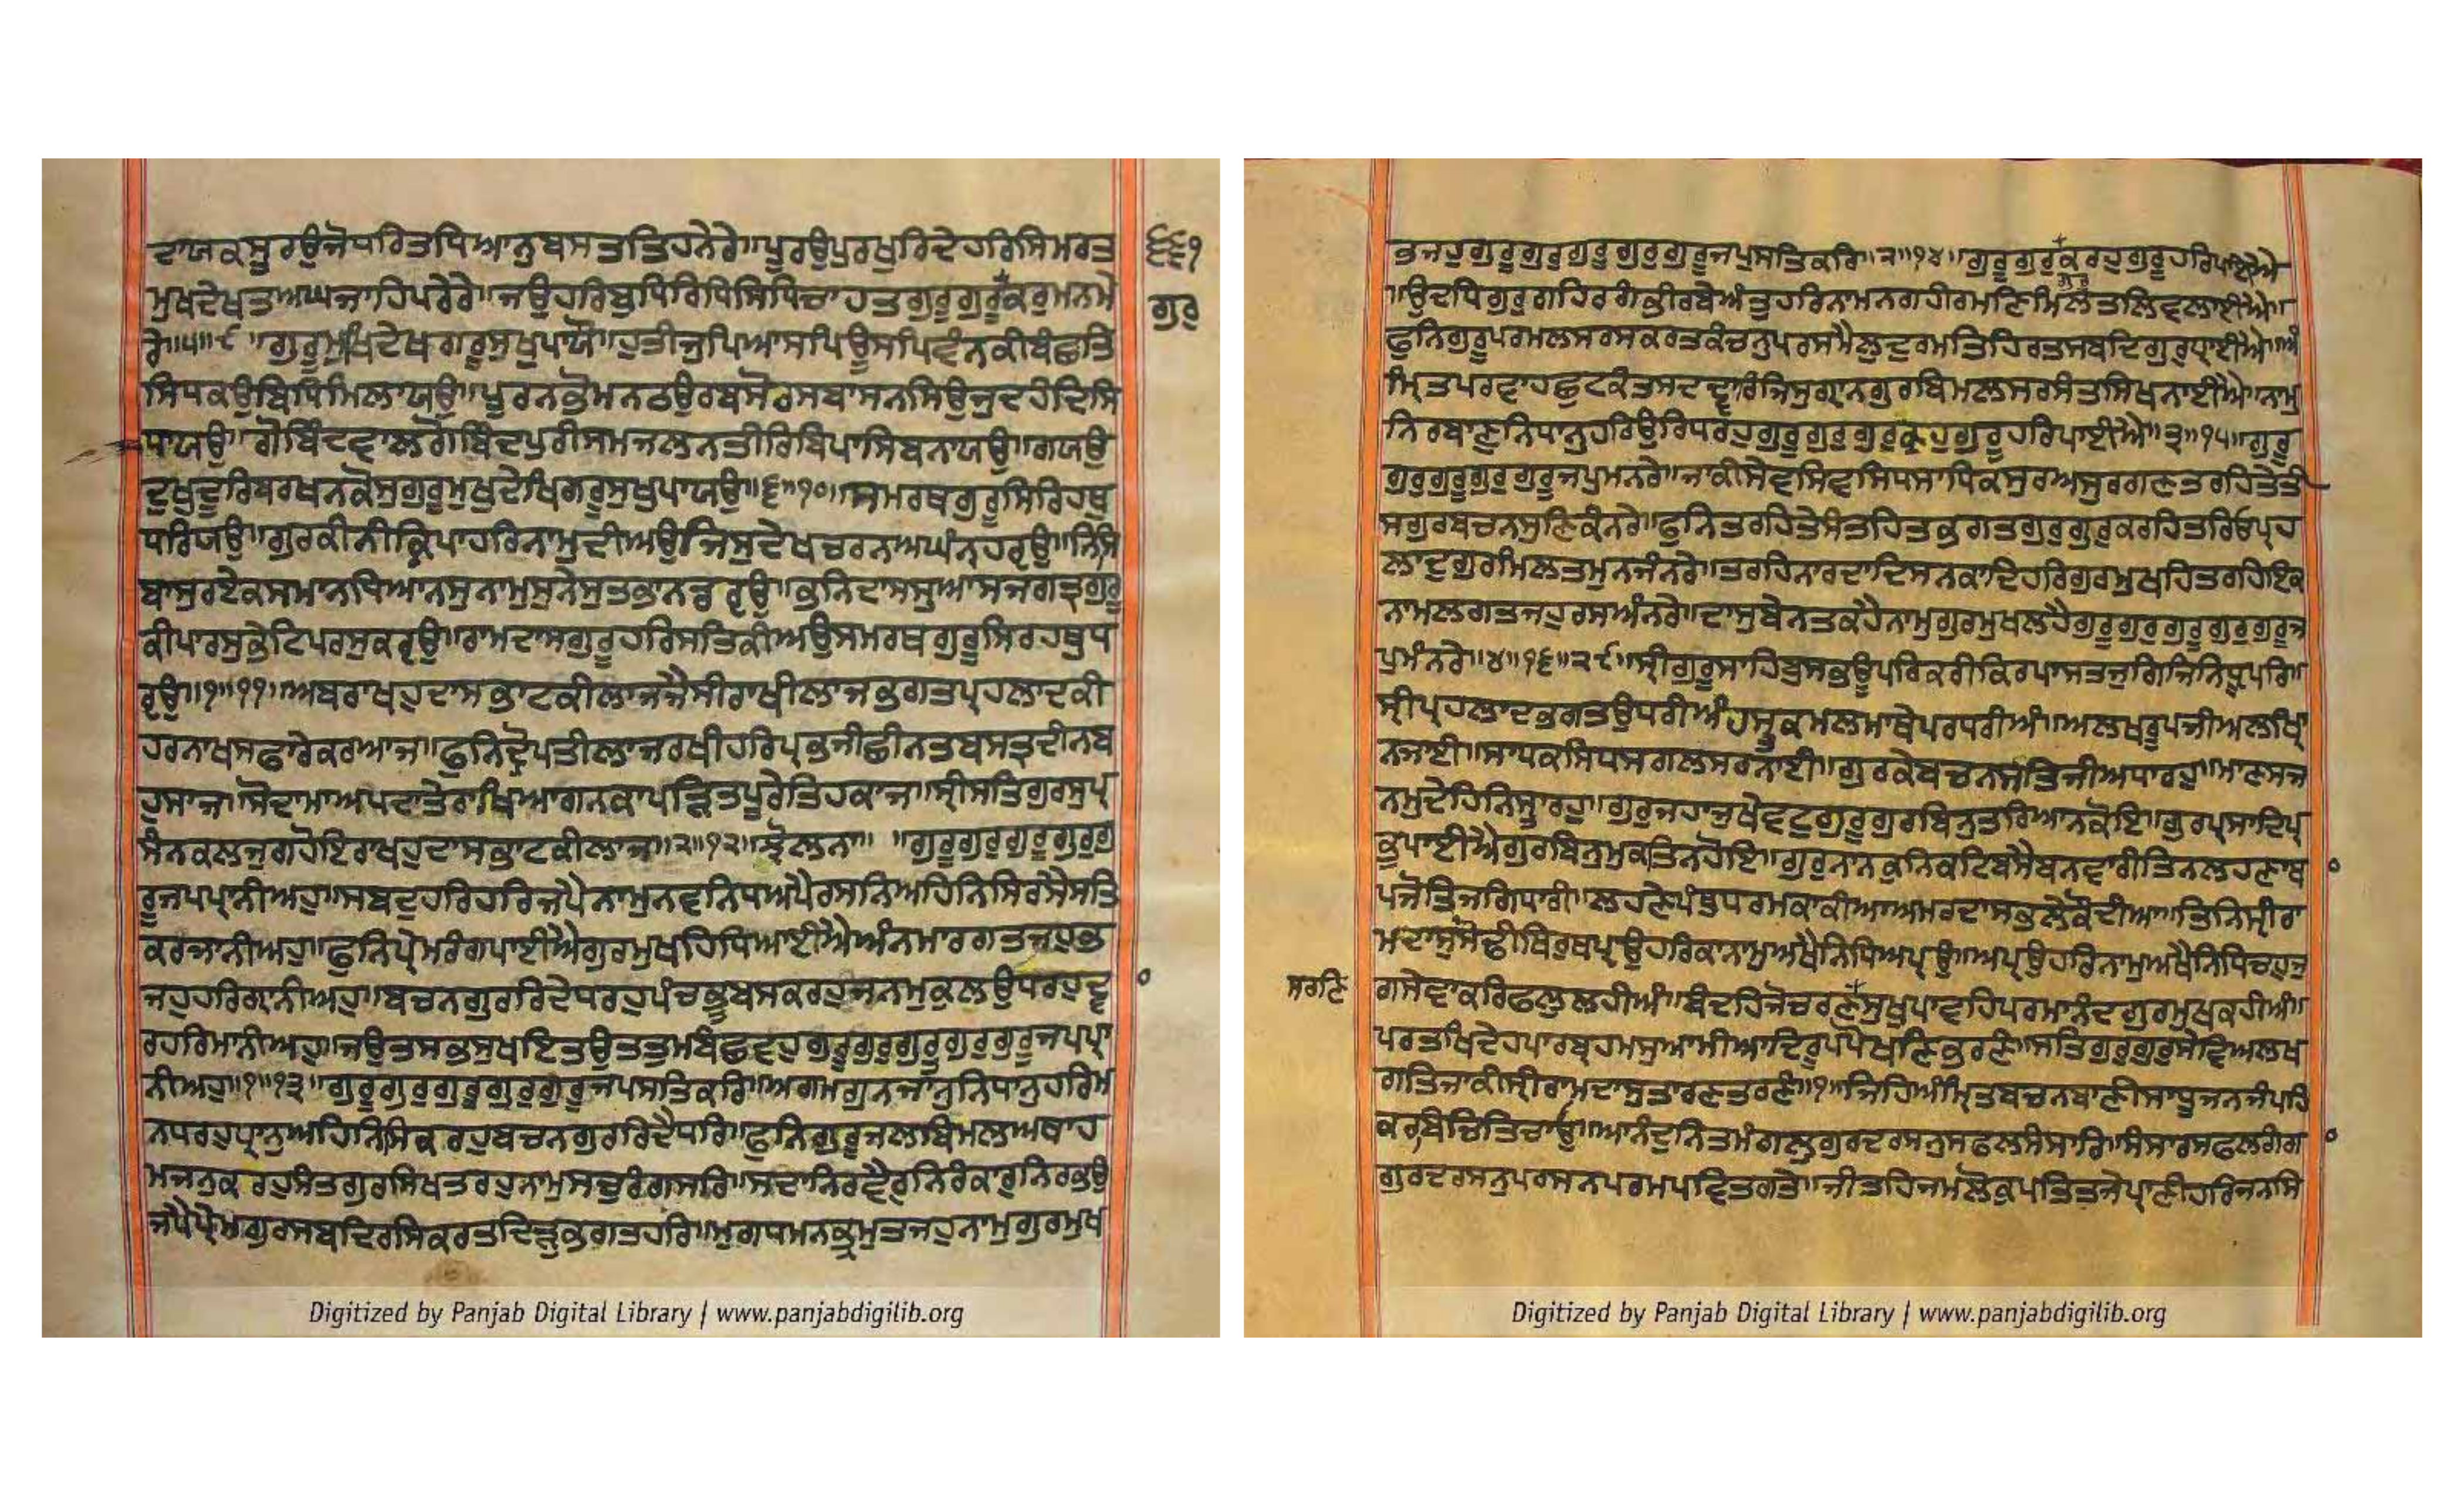 ਦਾਯਕਸੁਰਉਜੋਧਰਿਤਧਿਆਨੁਬਸਤਤਿਹਨੇਰੇ॥ਪੂਰਉਪੁਰਖੁਰਿਦੇਹਰਿਸਿਮਰਤ
੬੬੧
ਮੁਖਦੇਖਤਅਘਜਾਹਿਪਰੇਰੇ॥ਜਉਹਰਿਬੁਧਿਰਿਧਿਸਿਧਿਚਾਹਤਗੁਰੂਗੁਰੂਕਰੁਮਨਮੇ
ਗੁਰੁ
ਰੇ॥੫॥੯॥ਗੁਰੂਮੁਖਿਦੇਖਗਰੂਸੁਖੁਪਾਯੌ॥ਹੁਤੀਜੁਪਿਆਸਪਿਊਸਪਿਵੰਨਕੀਬੰਛਤਿ
ਸਿਧਕਉਬਿਧਿਮਿਲਾਯਉ॥ਪੂਰਨਭੋਮਨਠਉਰਬਸੋਰਸਬਾਸਨਸਿਉਜੁਦਹੰਦਿਸਿ
ਧਾਯਉ॥ਗੋਬਿੰਦਵਾਲਗੋਬਿੰਦਪੁਰੀਸਮਜਲਨਤੀਰਿਬਿਪਾਸਿਬਨਾਯਉ॥ਗਯਉ
ਦੁਖੁਦੂਰਿਬਰਖਨਕੋਸੁਗੁਰੂਮੁਖੁਦੇਖਿਗਰੂਸੁਖੁਪਾਯਉ॥੬॥੧੦॥ਸਮਰਥਗੁਰੂਸਿਰਿਹਥੁ
ਧਰਿਯਉ॥ਗੁਰਕੀਨੀਕ੍ਰਿਪਾਹਰਿਨਾਮੁਦੀਅਉਜਿਸੁਦੇਖਚਰਨਾਅਘੰਨਹਰ੍ਯਉ॥ਨਿਸਿ
ਬਾਸੁਰਏਕਸਮਾਨਧਿਆਨਸੁਨਾਮੁਸੁਨੇਸੁਤਭਾਨਡਰ੍ਯਉ॥ਭਨਿਦਾਸਸੁਆਸਜਗਤ੍ਰਗੁਰੁ
ਕੀਪਾਰਸੁਭੇਟਿਪਰਸੁਕਰ੍ਯਉ॥ਰਾਮਦਾਸਗੁਰੂਹਰਿਸਤਿਕੀਅਉਸਮਰਥਗੁਰੂਸਿਰਹਥੁਧ
ਰ੍ਯਉ॥੭॥੧੧॥ਅਬਰਾਖਹੁਦਾਸਭਾਟਕੀਲਾਜਜੈਸੀਰਾਖੀਲਾਜਭਗਤਪ੍ਰਹਲਾਦਕੀ
ਹਰਨਾਖਸਫਾਰੇਕਰਆਜ॥ਫੁਨਿਦ੍ਰੋਪਤੀਲਾਜਰਖੀਹਰਿਪ੍ਰਭਜੀਛੀਨਤਬਸਤ੍ਰਦੀਨਬ
ਹੁਸਾਜ॥ਸੋਦਾਮਾਅਪਦਾਤੇਰਾਖਿਆਗਨਕਾਪੜ੍ਹਿਤਪੂਰੇਤਿਹਕਾਜ॥ਸ੍ਰੀਸਤਿਗੁਰਸੁਪ੍ਰ
ਸੰਨਕਲਜੁਗਹੋਇਰਾਖਹੁਦਾਸਭਾਟਕੀਲਾਜ॥੮॥੧੨॥ਝੋਲਨਾ॥ ॥ਗੁਰੂਗੁਰੁਗੁਰੂਗੁਰੁਗੁ
ਰੂਜਪਪ੍ਰਾਨੀਅਹੁ॥ਸਬਦੁਹਰਿਹਰਿਜਪੈਨਾਮੁਨਵਨਿਧਅਪੈਰਸਨਿਅਹਿਨਿਸਿਰਸੈਸਤਿ
ਕਰਜਾਨੀਅਹੁ॥ਫੁਨਿਪ੍ਰੇਮਰੰਗਪਾਈਐਗੁਰਮੁਖਹਿਧਿਆਈਐਅੰਨਮਾਰਗਤਜਹੁਭ
ਜਹੁਹਰਿਗ੍ਯਾਨੀਅਹੁ॥ਬਚਨਗੁਰਰਿਦੈਧਰਹੁਪੰਚਭੂਬਸਕਰਹੁਜਨਮੁਕੁਲਉਧਰਹੁਦ੍ਵਾ
ਰਹਰਿਮਾਨੀਅਹੁ॥ਜਉਤਸਭਸੁਖਇਤਉਤਤੁਮਬੰਛਵਹੁਗੁਰੂਗੁਰੁਗੁਰੂਗੁਰੁਗੁਰੂਜਪਪ੍ਰਾ
ਨੀਅਹੁ॥੧॥੧੩॥ਗੁਰੂਗੁਰੁਗੁਰੂਗੁਰੁਗੁਰੂਜਪਸਤਿਕਰਿ॥ਅਗਮਗੁਨਜਾਨੁਨਿਧਾਨੁਹਰਿਮ
ਨਧਰਹੁਧ੍ਯਾਨੁਅਹਿਨਿਸਿਕਰਹੁਬਚਨਗੁਰਰਿਦੈਧਰਿ॥ਫੁਨਿਗੁਰੂਜਲਬਿਮਲਅਥਾਹ
ਮਜਨੁਕਰਹੁਸੰਤਗੁਰਸਿਖਤਰਹੁਨਾਮੁਸਚੁਰੰਗਸਰਿ॥ਸਦਾਨਿਰਵੈਰੁਨਿਰੰਕਾਰੁਨਿਰਭਉ
ਜਪੈਪ੍ਰੇਮਗੁਰਸਬਦਿਰਸਿਕਰਤਦ੍ਰਿੜੁਭਗਤਹਰਿ॥ਮੁਗਧਮਨਭ੍ਰਮੁਤਜਹੁਨਾਮੁਗੁਰਮੁਖ
ਭਜਹੁਗੁਰੂਗੁਰੁਗੁਰੂਗੁਰੁਗੁਰੂਜਪੁਸਤਿਕਰਿ॥੨॥੧੪॥ਗੁਰੂਗੁਰੁਕਰਹੁਗੁਰੂਹਰਿਪਾਈਐ
ਗੁਰੂ
॥ਉਦਧਿਗੁਰੁਗਹਿਰਗੰਭੀਰਬੇਅੰਤੁਹਰਿਨਾਮਨਗਹੀਰਮਣਿਮਿਲਤਲਿਵਲਾਈਐ॥
ਫੁਨਿਗੁਰੂਪਰਮਲਸਰਸਕਰਤਕੰਚਨੁਪਰਸਮੈਲੁਦੁਰਮਤਿਹਿਰਤਸਬਦਿਗੁਰੁਧ੍ਯਾਈਐ॥ਅੰ
ਮ੍ਰਿਤਪਰਵਾਹਛੁਟਕੰਤਸਦਦ੍ਵਾਰਿਜਿਸੁਗ੍ਯਾਨਗੁਰਬਿਮਲਸਰਸੰਤਸਿਖਨਾਈਐ॥ਨਾਮੁ
ਨਿਰਬਾਣੁਨਿਧਾਨੁਹਰਿਉਰਿਧਰਹੁਗੁਰੂਗੁਰੁਗੁਰੁਕਰਹੁਗੁਰੂਹਰਿਪਾਈਐ॥੩॥੧੫॥ਗੁਰੂ
ਗੁਰੁਗੁਰੂਗੁਰੁਗੁਰੂਜਪੁਮਨਰੇ॥ਜਾਕੀਸੇਵਸਿਵਸਿਧਸਾਧਿਕਸੁਰਅਸੁਰਗਣਤਰਹਿਤੇਤੀ
ਸਗੁਰਬਚਨਸੁਣਿਕੰਨਰੇ॥ਫੁਨਿਤਰਹਿਤੇਸੰਤਹਿਤਭਗਤਗੁਰੁਗੁਰੁਕਰਹਿਤਰਿਓਪ੍ਰਹ
ਲਾਦੁਗੁਰਮਿਲਤਮੁਨਜੰਨਰੇ॥ਤਰਹਿਨਾਰਦਾਦਿਸਨਕਾਦਿਹਰਿਗੁਰਮੁਖਹਿਤਰਹਿਇਕ
ਨਾਮਲਗਤਜਹੁਰਸਅੰਨਰੇ॥ਦਾਸੁਬੇਨਤਕਹੈਨਾਮੁਗੁਰਮੁਖਲਹੈਗੁਰੂਗੁਰੁਗੁਰੂਗੁਰੁਗੁਰੂਜ
ਪੁਮੰਨਰੇ॥੪॥੧੬॥੨੯॥ਸ੍ਰੀਗੁਰੂਸਾਹਿਬੁਸਭਊਪਰਿਕਰੀਕਿਰਪਾਸਤਜੁਗਿਜਿਨਿਧ੍ਰੂਪਰਿ॥
ਸ੍ਰੀਪ੍ਰਹਲਾਦਭਗਤਉਧਰੀਅੰਹਸ੍ਤਕਮਲਮਾਥੇਪਰਧਰੀਅੰ॥ਅਲਖਰੂਪਜੀਅਲਖ੍ਯਾ
ਨਜਾਈ॥ਸਾਧਕਸਿਧਸਗਲਸਰਨਾਈ॥ਗੁਰਕੇਬਚਨਸਤਿਜੀਅਧਾਰਹੁ॥ਮਾਣਸਜ
ਨਮੁਦੇਹਿਨਿਸ੍ਤਾਰਹੁ॥ਗੁਰੁਜਹਾਜੁਖੇਵਟੁਗੁਰੂਗੁਰਬਿਨੁਤਰਿਆਨਕੋਇ॥ਗੁਰਪ੍ਰਸਾਦਿਪ੍ਰ
ਭੁਪਾਈਐਗੁਰਬਿਨੁਮੁਕਤਿਨਹੋਇ॥ਗੁਰੁਨਾਨਕੁਨਿਕਟਿਬਸੈਬਨਵਾਰੀਤਿਨਲਹਣਾਥ
ਪਜੋਤਿਜਗਿਧਾਰੀ॥ਲਹਣੇਪੰਥੁਧਰਮਕਾਕੀਆਅਮਰਦਾਸਭਲੇਕੋਦੀਆ॥ਤਿਨਿਸ੍ਰੀਰਾ
ਮਦਾਸੁਸੋਢੀਥਿਰੁਥਪ੍ਯਉਹਰਿਕਾਨਾਮੁਅਖੈਨਿਧਿਅਪ੍ਯਉ॥ਅਪ੍ਯਉਹਰਿਨਾਮੁਅਖੈਨਿਧਿਚਹੁਜੁ
ਸਰਣਿ
ਗਸੇਵਾਕਰਿਫਲੁਲਹੀਅੰ॥ਬੰਦਹਿਜੋਚਰਣਸੁਖੁਪਾਵਹਿਪਰਮਾਨੰਦਗੁਰਮੁਖਕਹੀਅੰ॥
ਪਰਤਖਿਦੇਹਪਾਰਬ੍ਰਹਮਸੁਆਮੀਆਦਿਰੂਪਪੋਖਣਿਭਰਣੰ॥ਸਤਿਗੁਰੁਗੁਰੁਸੇਵਿਅਲਖ
ਗਤਿਜਾਕੀਸ੍ਰੀਰਾਮਦਾਸੁਤਾਰਣਤਰਣੰ॥੧॥ਜਿਹਿਅੰਮ੍ਰਿਤਬਚਨਬਾਣੀਸਾਧੂਜਨਜੰਪਹਿ
ਕਰਿਬਿਚਿਤਿਚਾਓ॥ਆਨੰਦੁਨਿਤਮੰਗਲੁਗੁਰਦਰਸਨੁਸਫਲਸੰਸਾਰਿ॥ਸੰਸਾਰਸਫਲਗੰਗ
ਗੁਰਦਰਸਨੁਪਰਸਨਪਰਮਪਵਿਤਗਤੇ॥ਜੀਤਹਿਜਮਲੋਕੁਪਤਿਤਜੇਪ੍ਰਾਣੀਹਰਿਜਨਸਿ
Digitized by Panjab Digital Library | www.panjabdigilib.org
Digitized by Panjab Digital Library | www.panjabdigilib.org